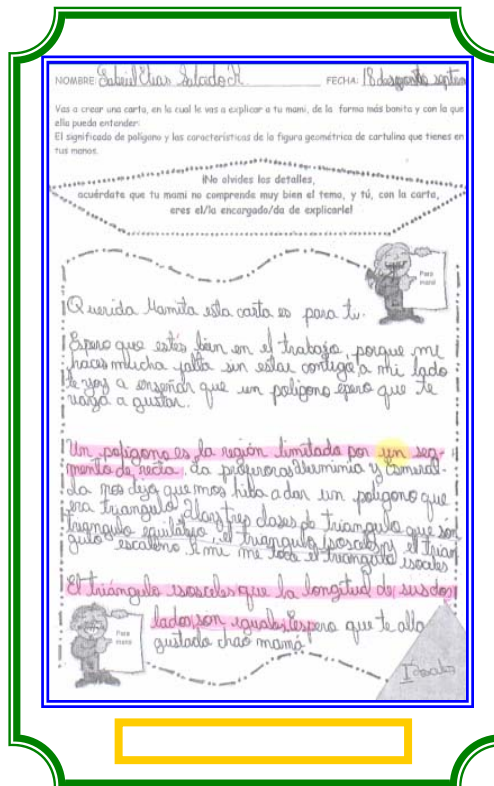 NOMBRE: Gabriel Elias Salcedo R FECHA: 18 de septiem
Vas a crear una carta, en la cual le vas a explicar a tu mami, de la forma más bonita y con la que
ella pueda entender:
El significado de polígono y las características de la figura geométrica de cartulina que tienes en
tus manos.
¡No olvides los detalles,
acuérdate que tu mami no comprende muy bien el tema, y tú, con la carta,
eres el/la encargado/da de explicarle!
Para
mami
Querida Mamita esta carta es para tu.
Espero que estés bien en el trabajo, porque me
haces mucha falta sin estar contigo, a mi lado
te voy a enseñar que un poligono epero que te
vaga a gustar.
Un poligono es la región limitada por un seg-
mento de recta. La profesoras Iluminia y Esmeral-
da nos dijo que mos hiba a dar un poligono que
era triangulo. Hay tres clases de triangulo que son
triangulo equilátero, el triangulo isosceles y el trian
gulo escaleno A mi me toco el triangulo isoceles
El triángulo isosceles que la longitud de sus dos
lados son iguales. Espero que te alla
gustado chao mamá
Para
mami